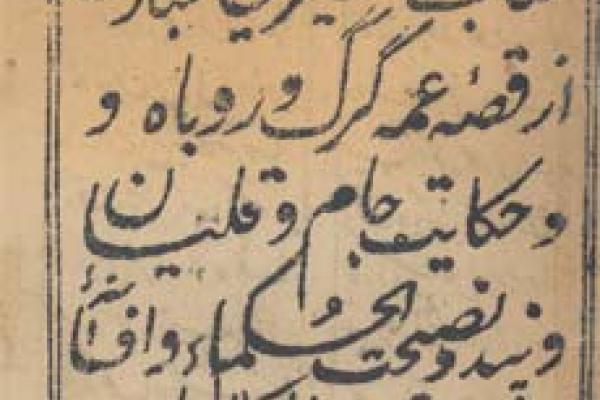 از قصهٔ عمه گرگ و روباه و
و حکایت جام و قلیان
و پند و نصیحت الحکماء و افسانهٔ